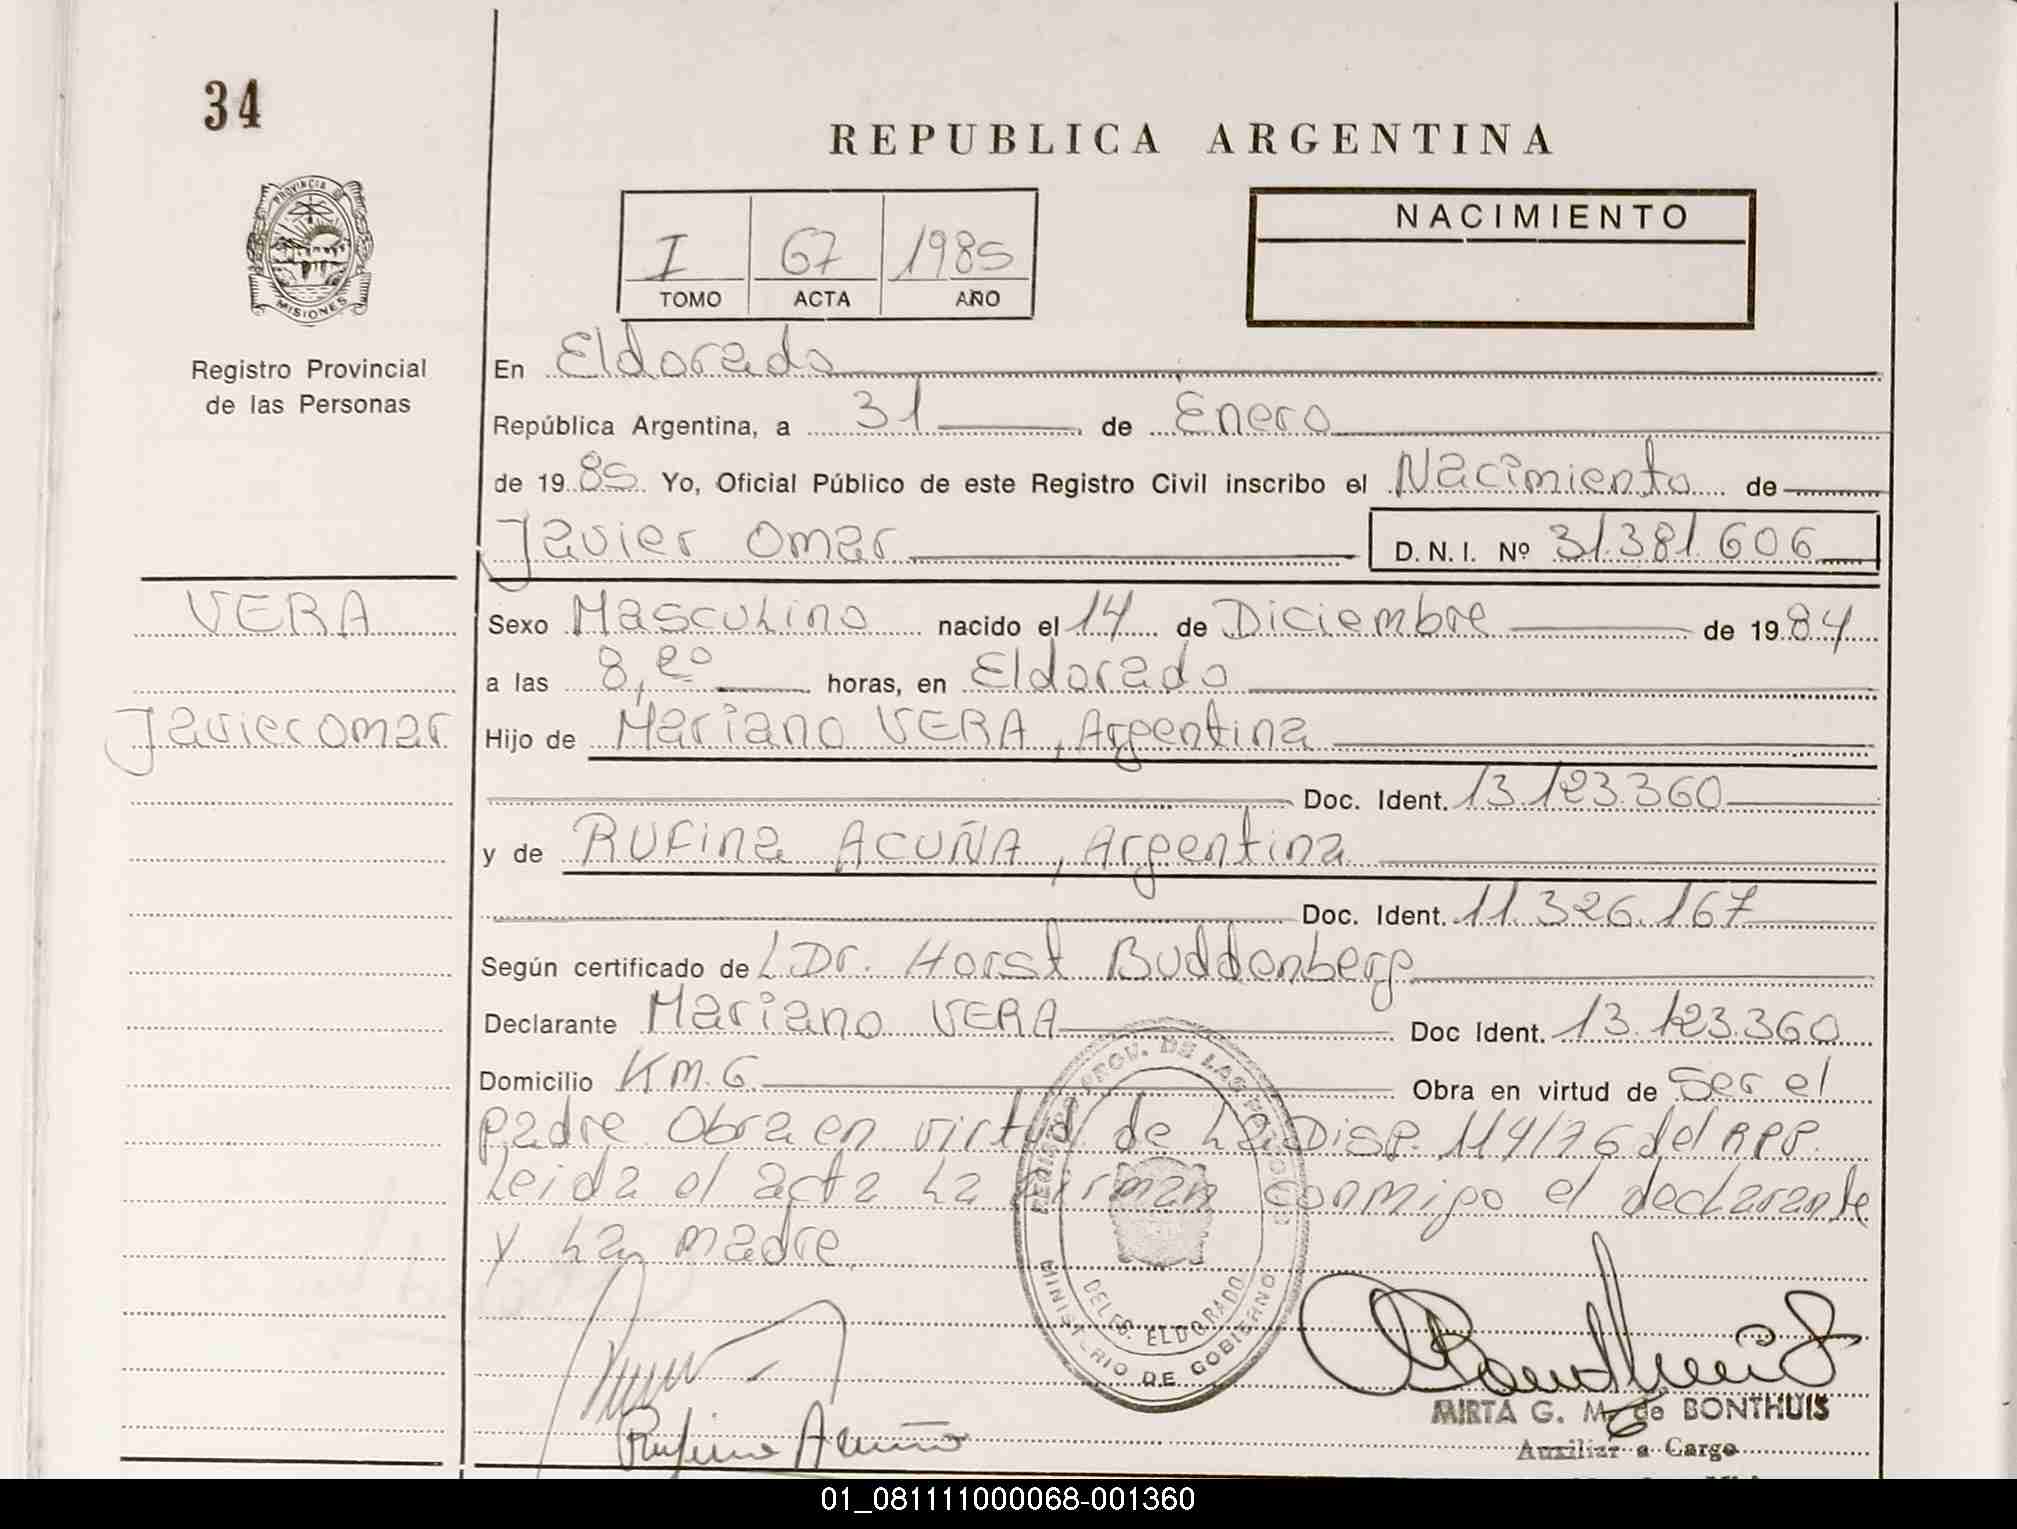 34
REPUBLICA ARGENTINA
PROVINCIA DE
MISIONES
I 67 1985
TOMO ACTA AÑO
NACIMIENTO
Registro Provincial
de las Personas
En Eldorado
República Argentina, a 31 de Enero
de 1985 Yo, Oficial Público de este Registro Civil inscribo el Nacimiento de
Javier Omar D. N. I. Nº 31.381.606
VERA
Javier omar
Sexo Masculino nacido el 14 de Diciembre de 1984
a las 8, horas, en Eldorado
Hijo de Mariano VERA, Argentina
Doc. Ident. 13.123.360
y de RUFina ACUÑA, Argentina
Doc. Ident. 11.326.167
Según certificado de L Dr. Horst Buddenberg
Declarante Mariano VERA Doc Ident. 13.123.360
Domicilio KM. 6 Obra en virtud de Ser el
padre. Obra en virtud de La Disp. 114/76 del RPP.
Leida el acta La Firman conmigo el declarante
y La madre.
REGISTRO PROV. DE LAS PERSONAS
DELEG. ELDORADO
MINISTERIO DE GOBIERNO
Rufina Acuña
MIRTA G. M. de BONTHUIS
Auxiliar a Cargo
01_081111000068-001360